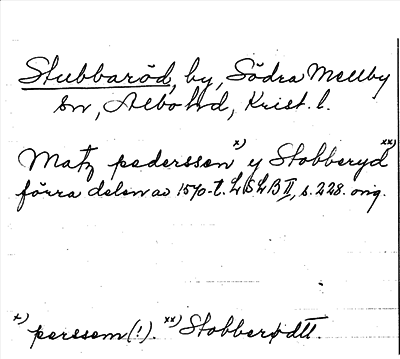 Stubbaröd, by, Södra Mellby
sn, Albo hd, Krist. l.
Matz pederssen x) y Stobberyd xx)
förra delen av 1570-t. LSLB II, s. 228. orig.
x) perssem (!). xx) Stobberødtt.